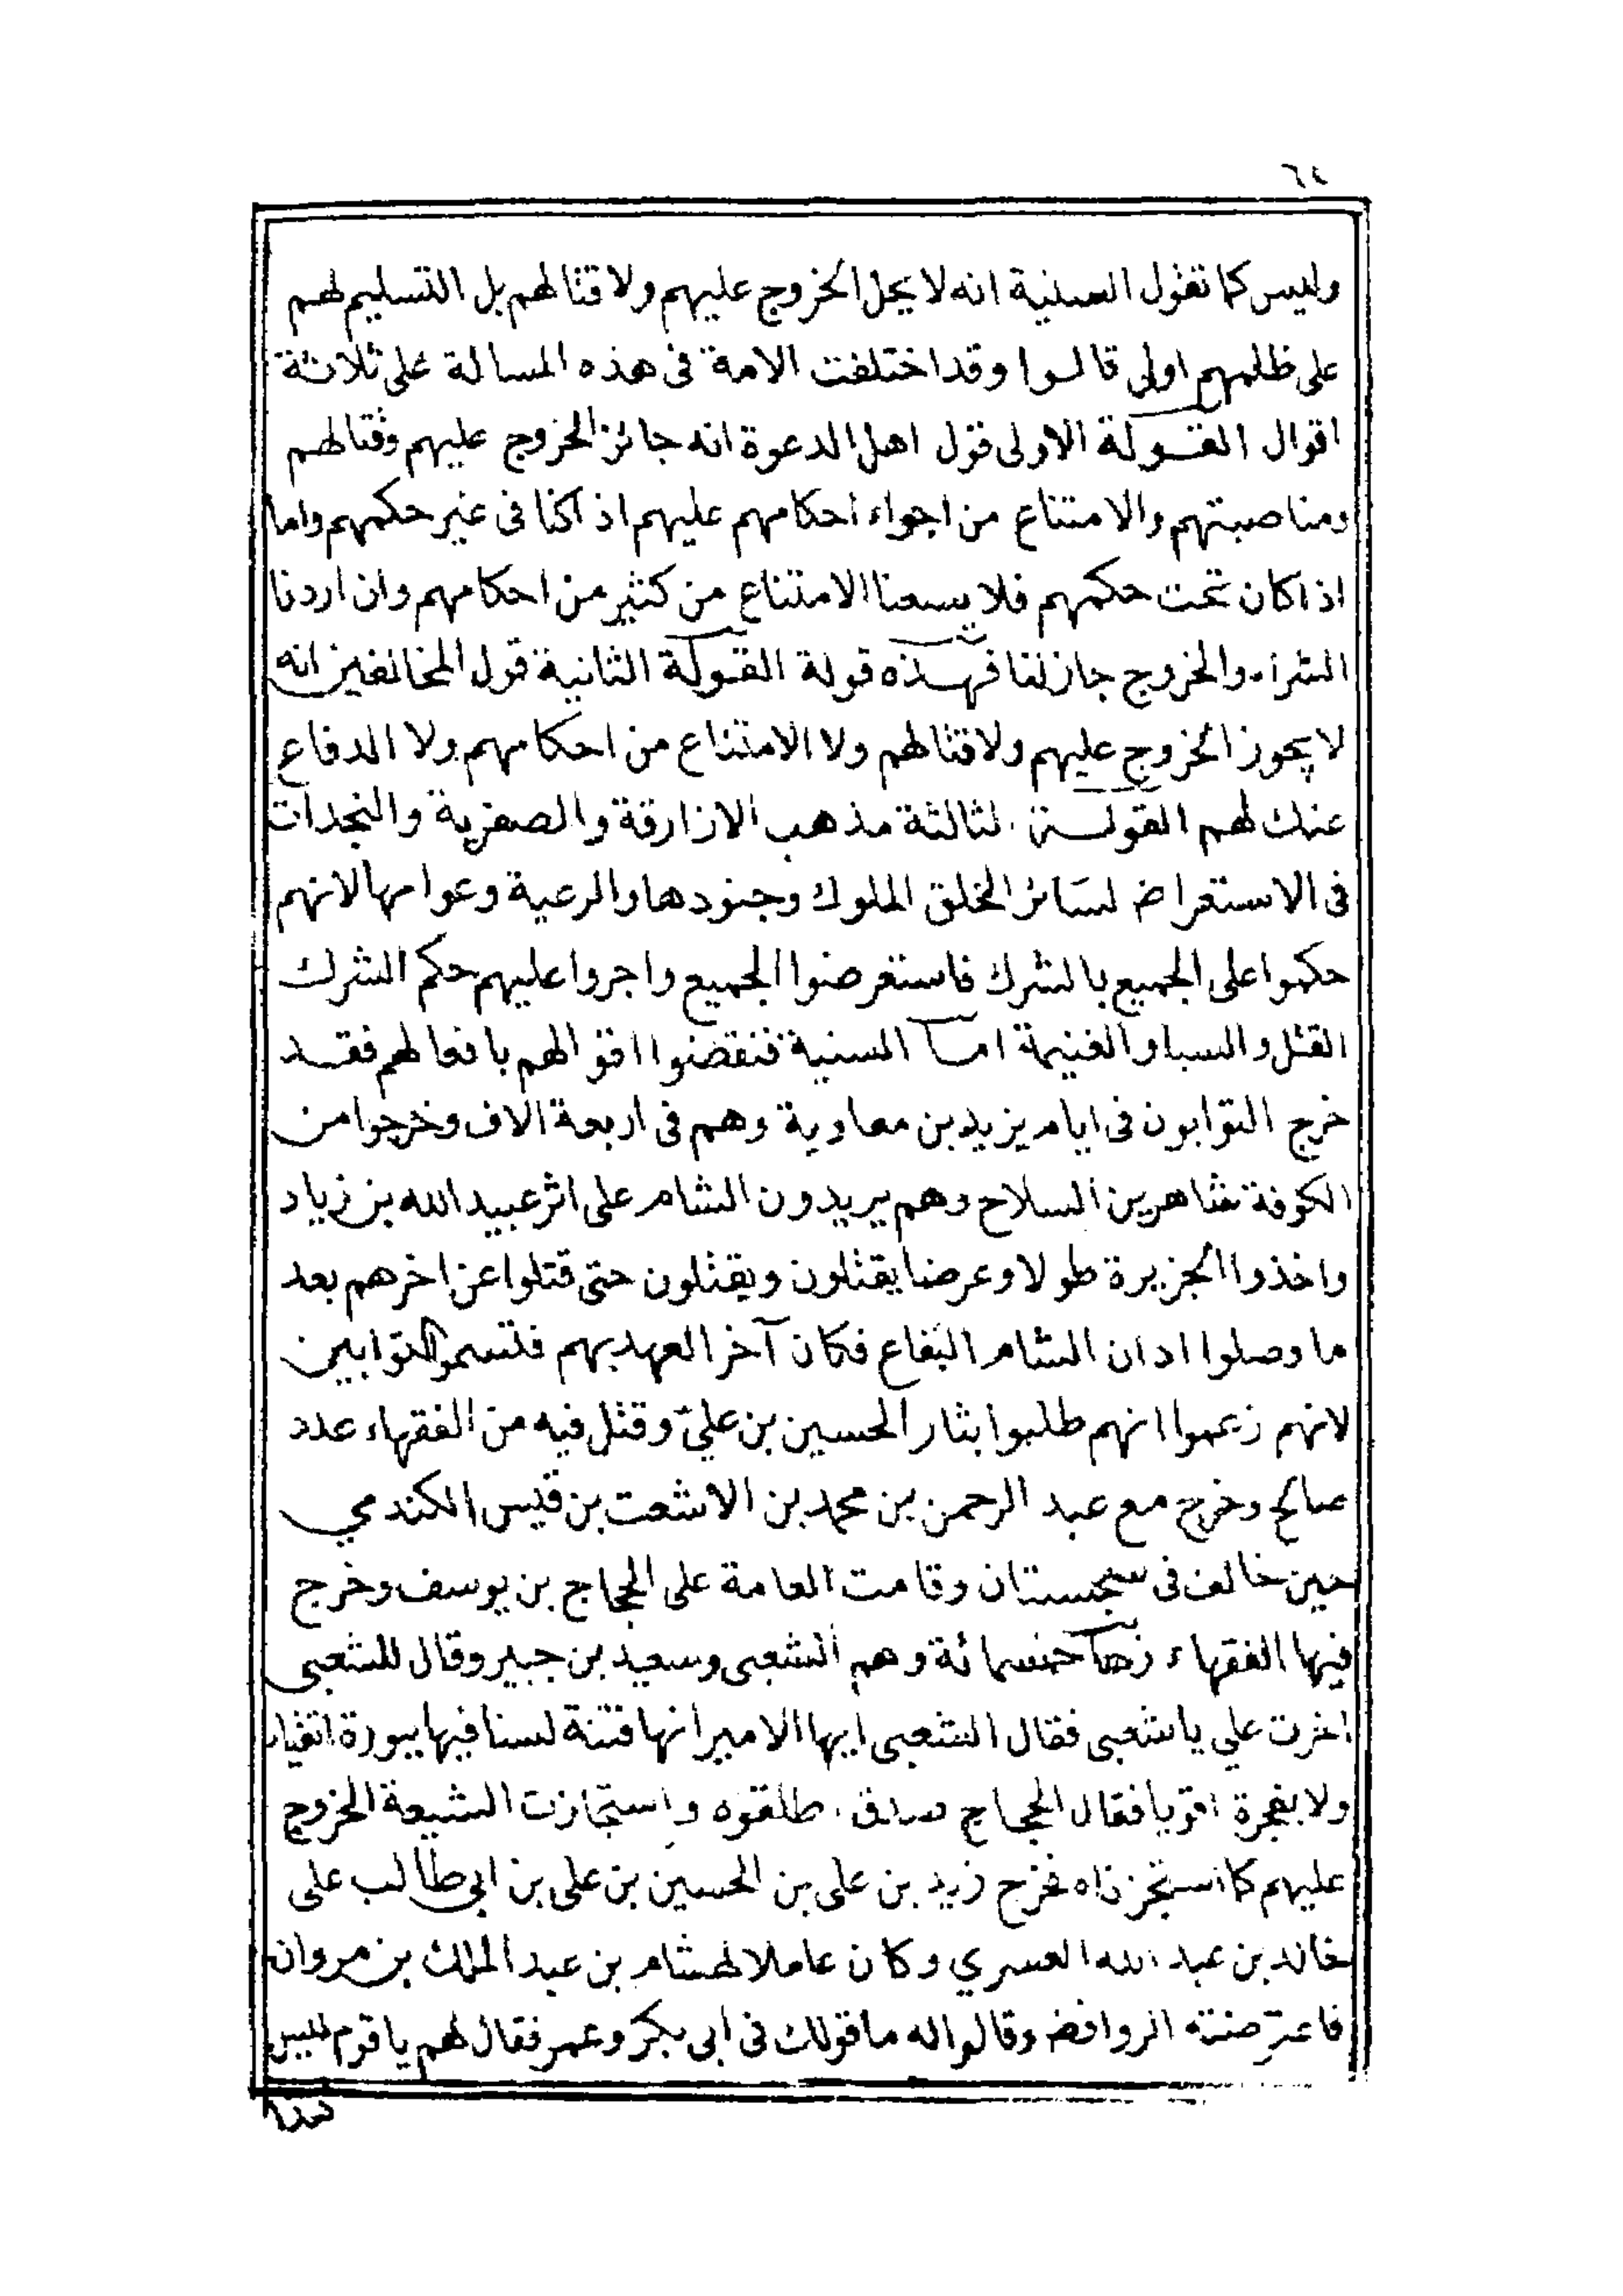 ٦٤
وليس كما تقول السنية انه لا يحل الخروج عليهم ولا قتالهم بل التسليم لهم
على ظلمهم اولى قالوا وقد اختلفت الامة فى هذه المسالة على ثلاثة
اقوال القولة الاولى قول اهل الدعوة انه جائز الخروج عليهم وقتالهم
ومناصبتهم والامتناع من اجراء احكامهم عليهم اذا كنا فى غير حكمهم واما
اذا كان تحت حكمهم فلا يسعنا الامتناع من كثير من احكامهم وان اردنا
الشراء والخروج جاز لنا فهذه قولة القولة الثانية قول المخالفين انه
لا يجوز الخروج عليهم ولا قتالهم ولا الامتناع من احكامهم ولا الدفاع
عنك لهم القولة الثالثة مذهب الازارقة والصفرية والنجدات
فى الاستعراض لسائر الخلق الملوك وجنودها والرعية وعوامها لانهم
حكموا على الجميع بالشرك فاستعرضوا الجميع واجروا عليهم حكم الشرك
القتل والسبا والغنيمة اما السنية فنقضوا اقوالهم بافعالهم فقد
خرج التوابون فى ايام يزيد بن معاوية وهم فى اربعة الاف وخرجوا من
الكوفة شاهرين السلاح وهم يريدون الشام على اثر عبيد الله بن زياد
واخذوا الجزيرة طولا وعرضا يقتلون ويقتلون حتى قتلوا عن اخرهم بعد
ما وصلوا ادان الشام البقاع فكان آخر العهد بهم فتسموا التوابين
لانهم زعموا انهم طلبوا بثار الحسين بن علي وقتل فيه من الفقهاء عدد
صالح وخرج مع عبد الرحمن بن محمد بن الاشعت بن قيس الكندي
حين خالف فى سجستان وقامت العامة على الحجاج بن يوسف وخرج
فيها الفقهاء زهآ خمسمائة وهم الشعبى وسعيد بن جبير وقال للشعبى
اخرت علي يا شعبى فقال الشعبى ايها الامير انها فتنة لسنا فيها ببورة اتقياء
ولا بفجرة اقويا فقال الحجاج صدق اطلقوه واستجازت الشيعة الخروج
عليهم كما استجزناه فخرج زيد بن على بن الحسين بن على بن ابي طالب على
خالد بن عبد الله القسري وكان عاملا لهشام بن عبد الملك بن مروان
فاعترضته الروافض وقالوا له ما قولك فى ابى بكر وعمر فقال لهم يا قوم ليس